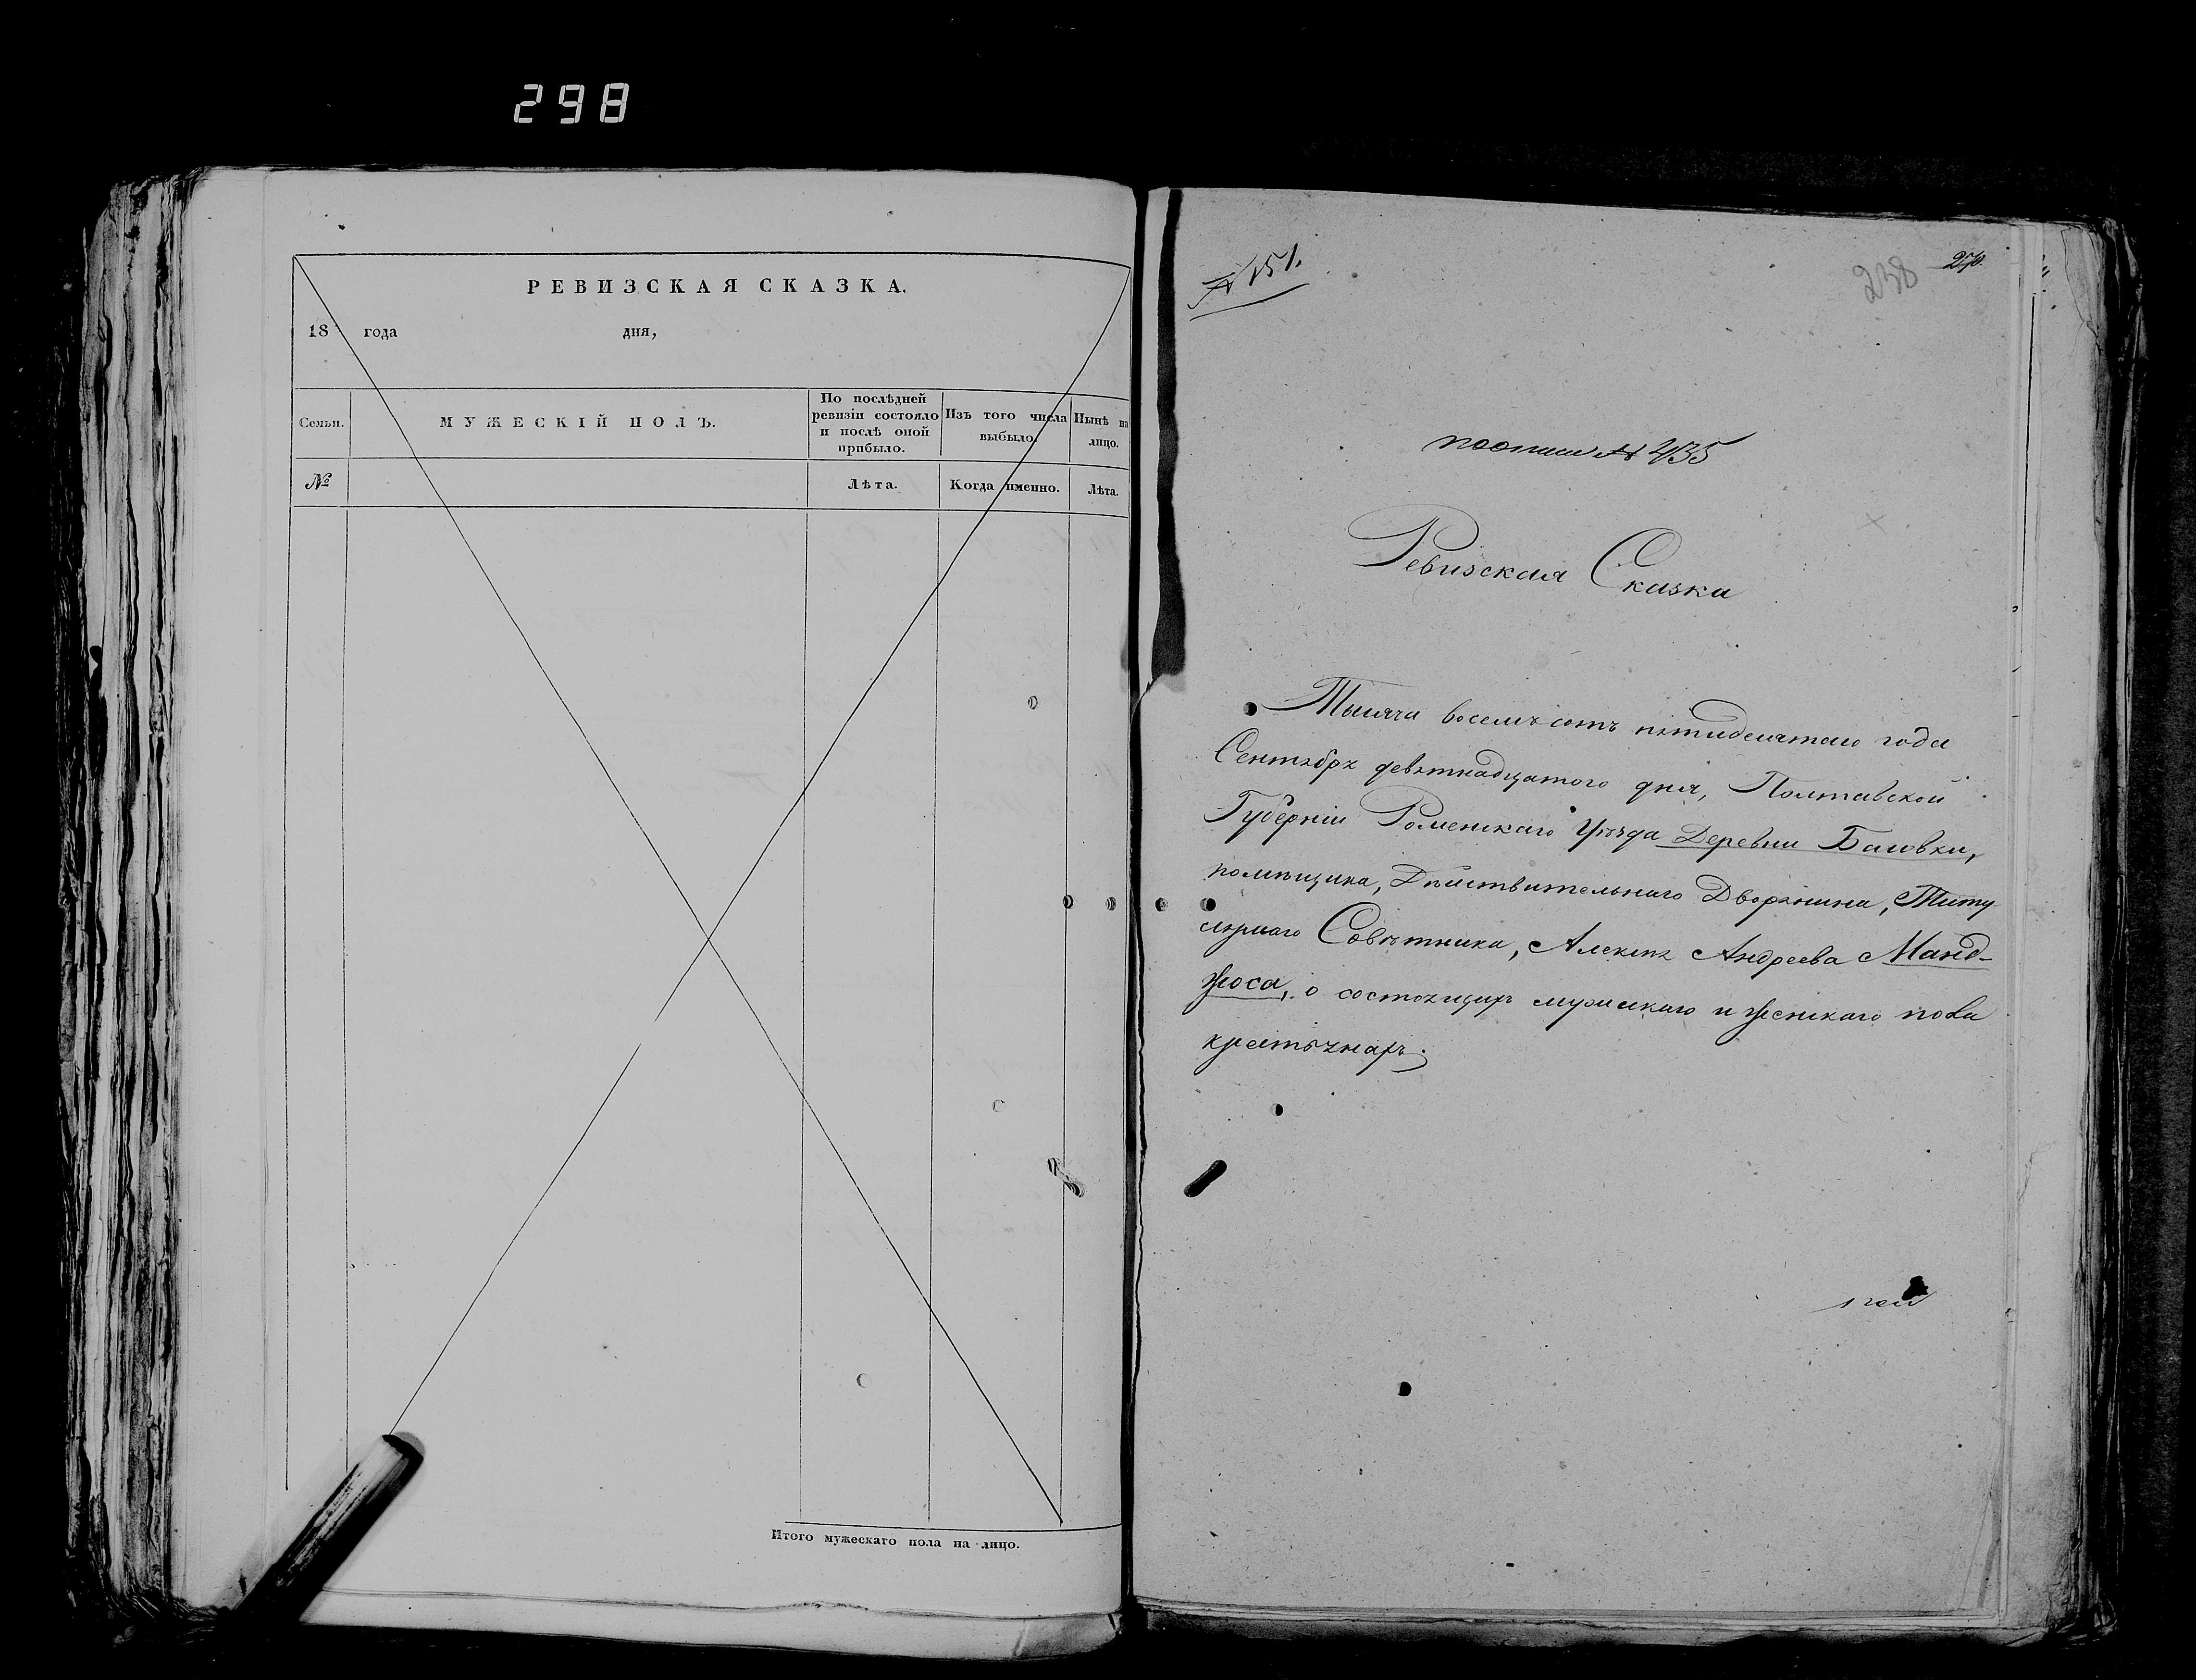 298
РЕВИЗСКАЯ СКАЗКА.
18 года дня,
Семьи. МУЖЕСКІЙ ПОЛЪ. По послѣдней ревизіи состояло и послѣ оной прибыло. Изъ того числа выбыло. Нынѣ на лицо.
№ Лѣта. Когда именно. Лѣта.
Итого мужескаго пола на лицо.
№ 151.
238
по описи № 435
Ревизская Сказка
Тысяча восемъ сотъ пятидесятаго года
Сентября девятнадцатого дня, Полтавской
Губерніи Роменскаго Уѣзда Деревни Басовки,
помѣщика, Дѣйствительнаго Дворянина, Титу-
лярнаго Совѣтника, Алексѣя Андреева Манд-
жоса, о состоящихъ мужескаго и женскаго пола
крестьянахъ.